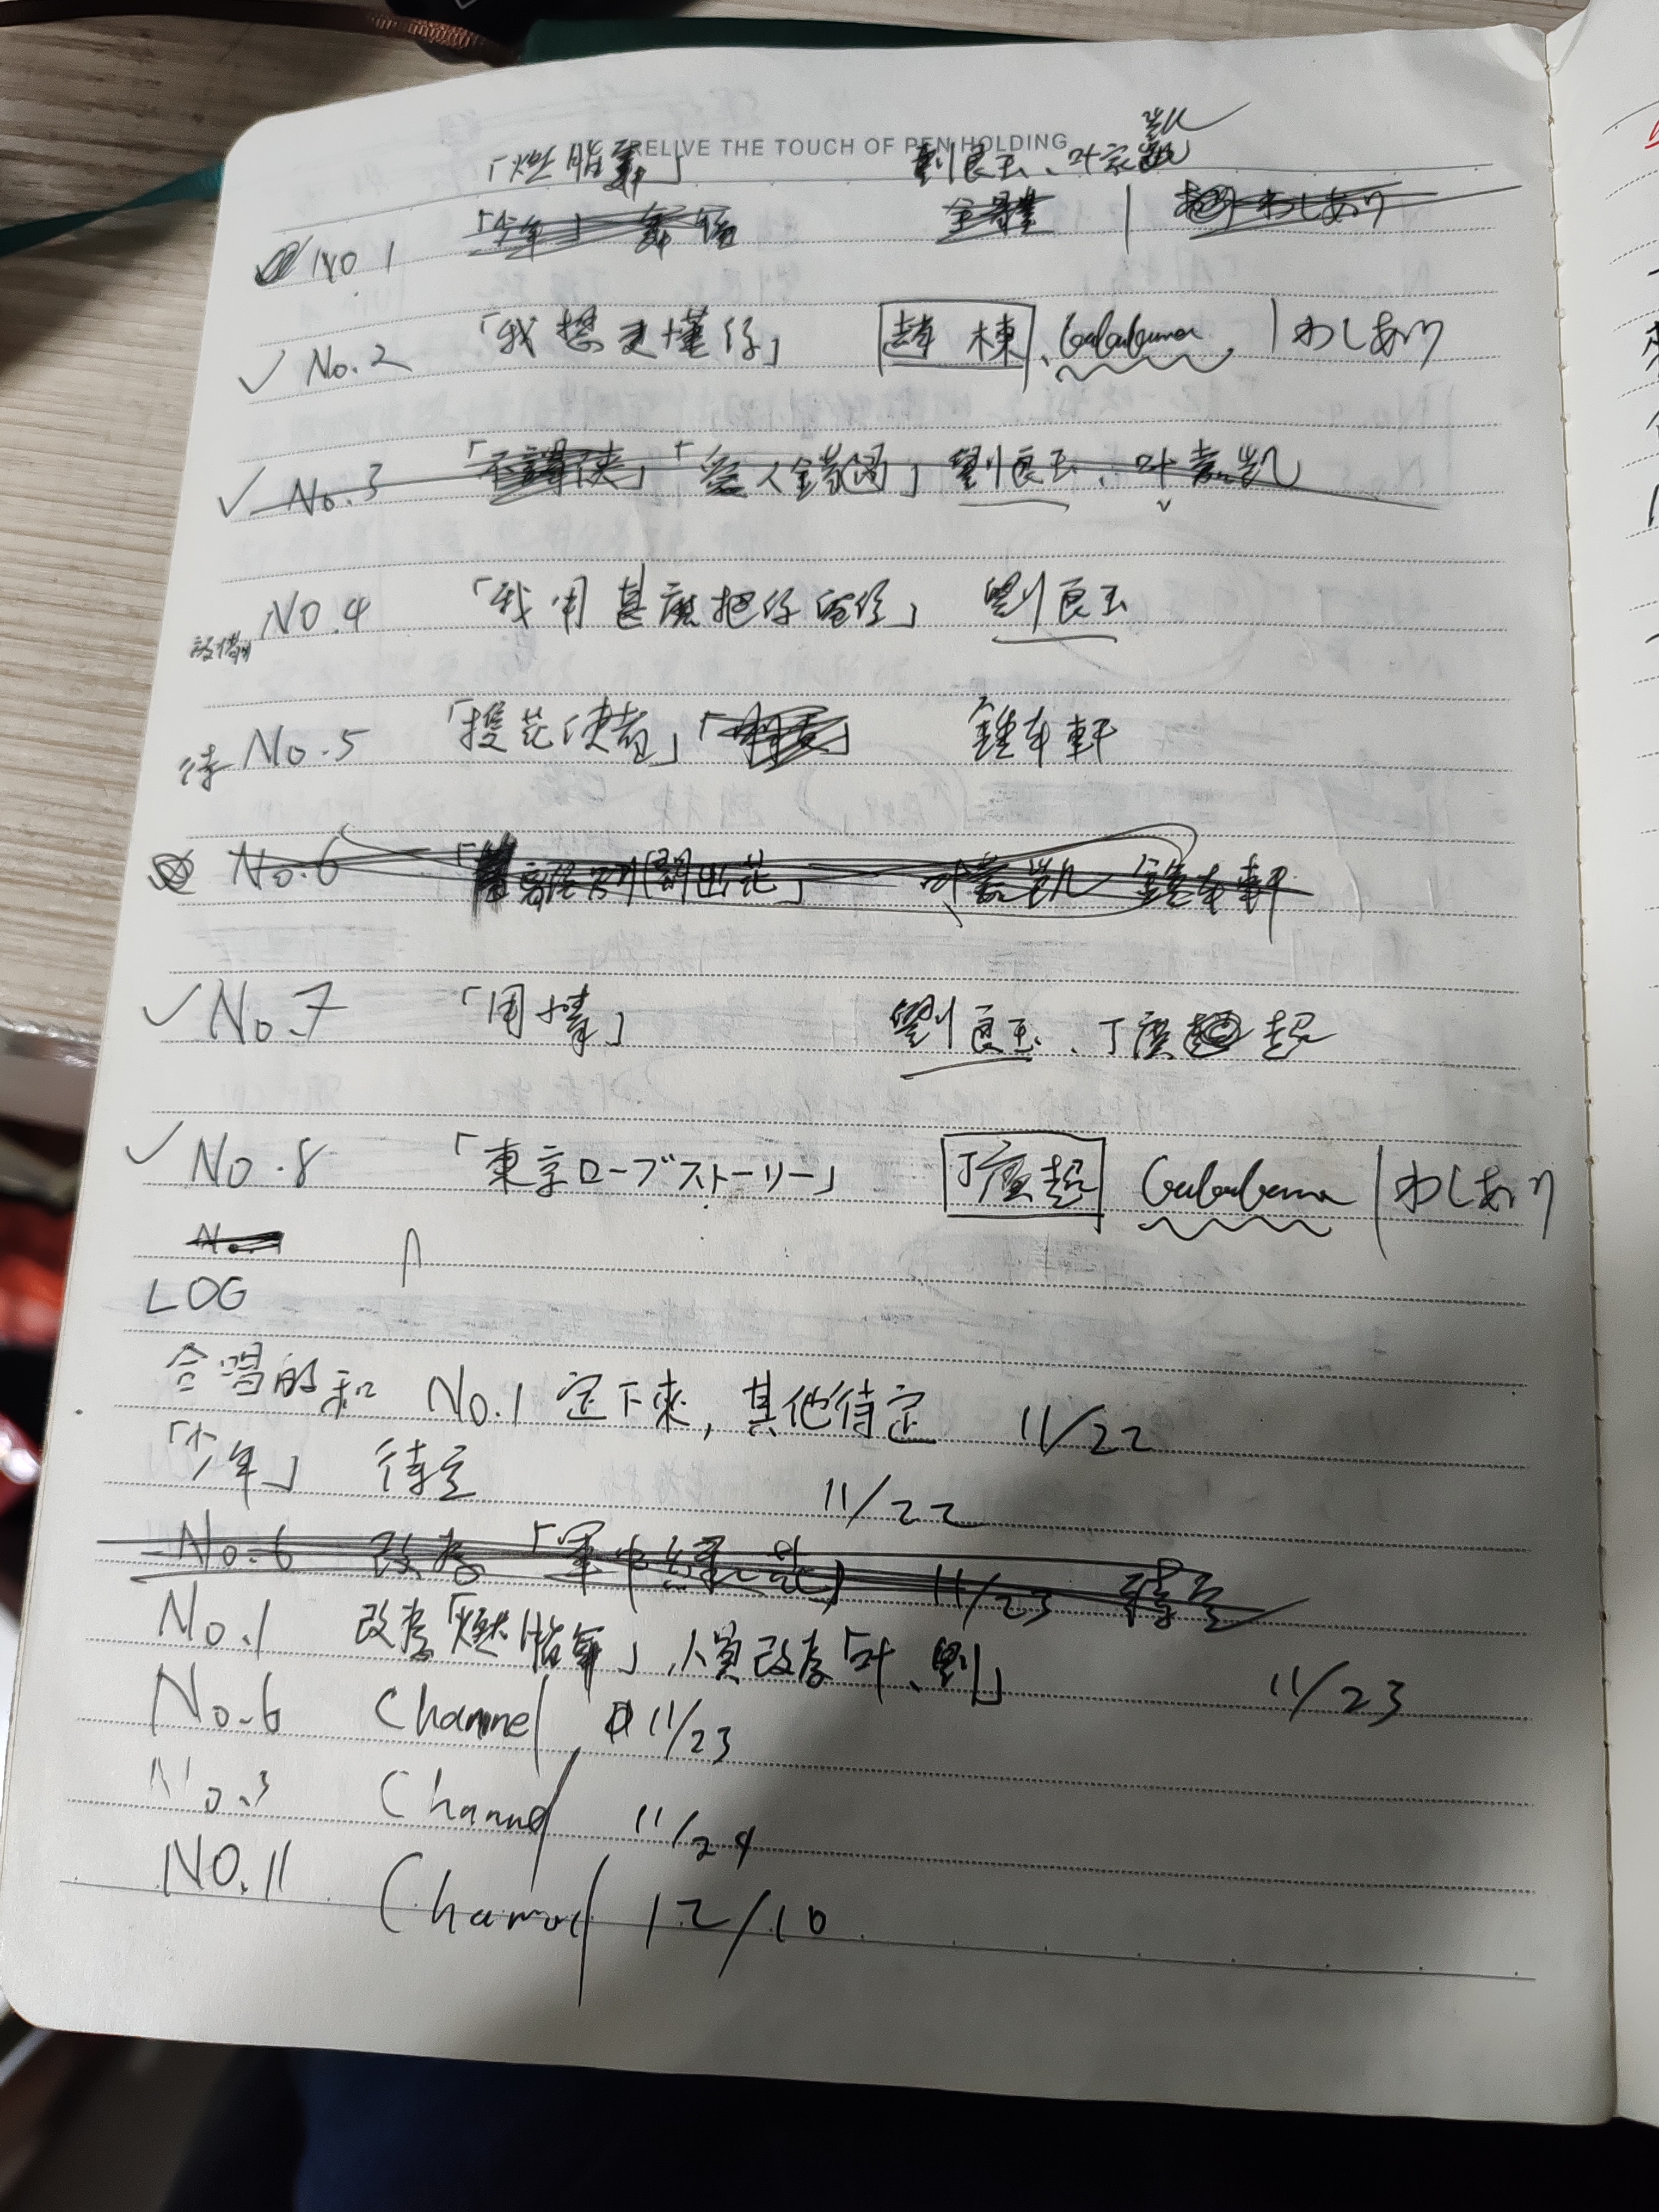 RELIVE THE TOUCH OF PEN HOLDING
「燃脂舞」 劉良玉、叶家凱
No.1 「少年」 全體 | わしあり
✓ No.2 「我想更懂你」 趙棟、Gububuma | わしあり
✓ No.3 「愛人錯過」 劉良玉、叶家凱
No.4 「我用甚麼把你留住」 劉良玉
設備
待 No.5 「提花使者」 鍾车軒
No.6 叶家凱 鍾车軒
✓ No.7 「用情」 劉良玉、丁廣超
✓ No.8 「東京ローブストーリー」 丁廣超 Gububuma | わしあり
LOG
合唱的和 No.1 定下來,其他待定 11/22
「少年」 待定 11/22
No.6 改為「軍中綠花」 11/23
No.1 改為「燃脂舞」,人員改為「叶、劉」 11/23
No.6 Channel 11/23
No.3 Channel 11/24
NO.11 Channel 12/10